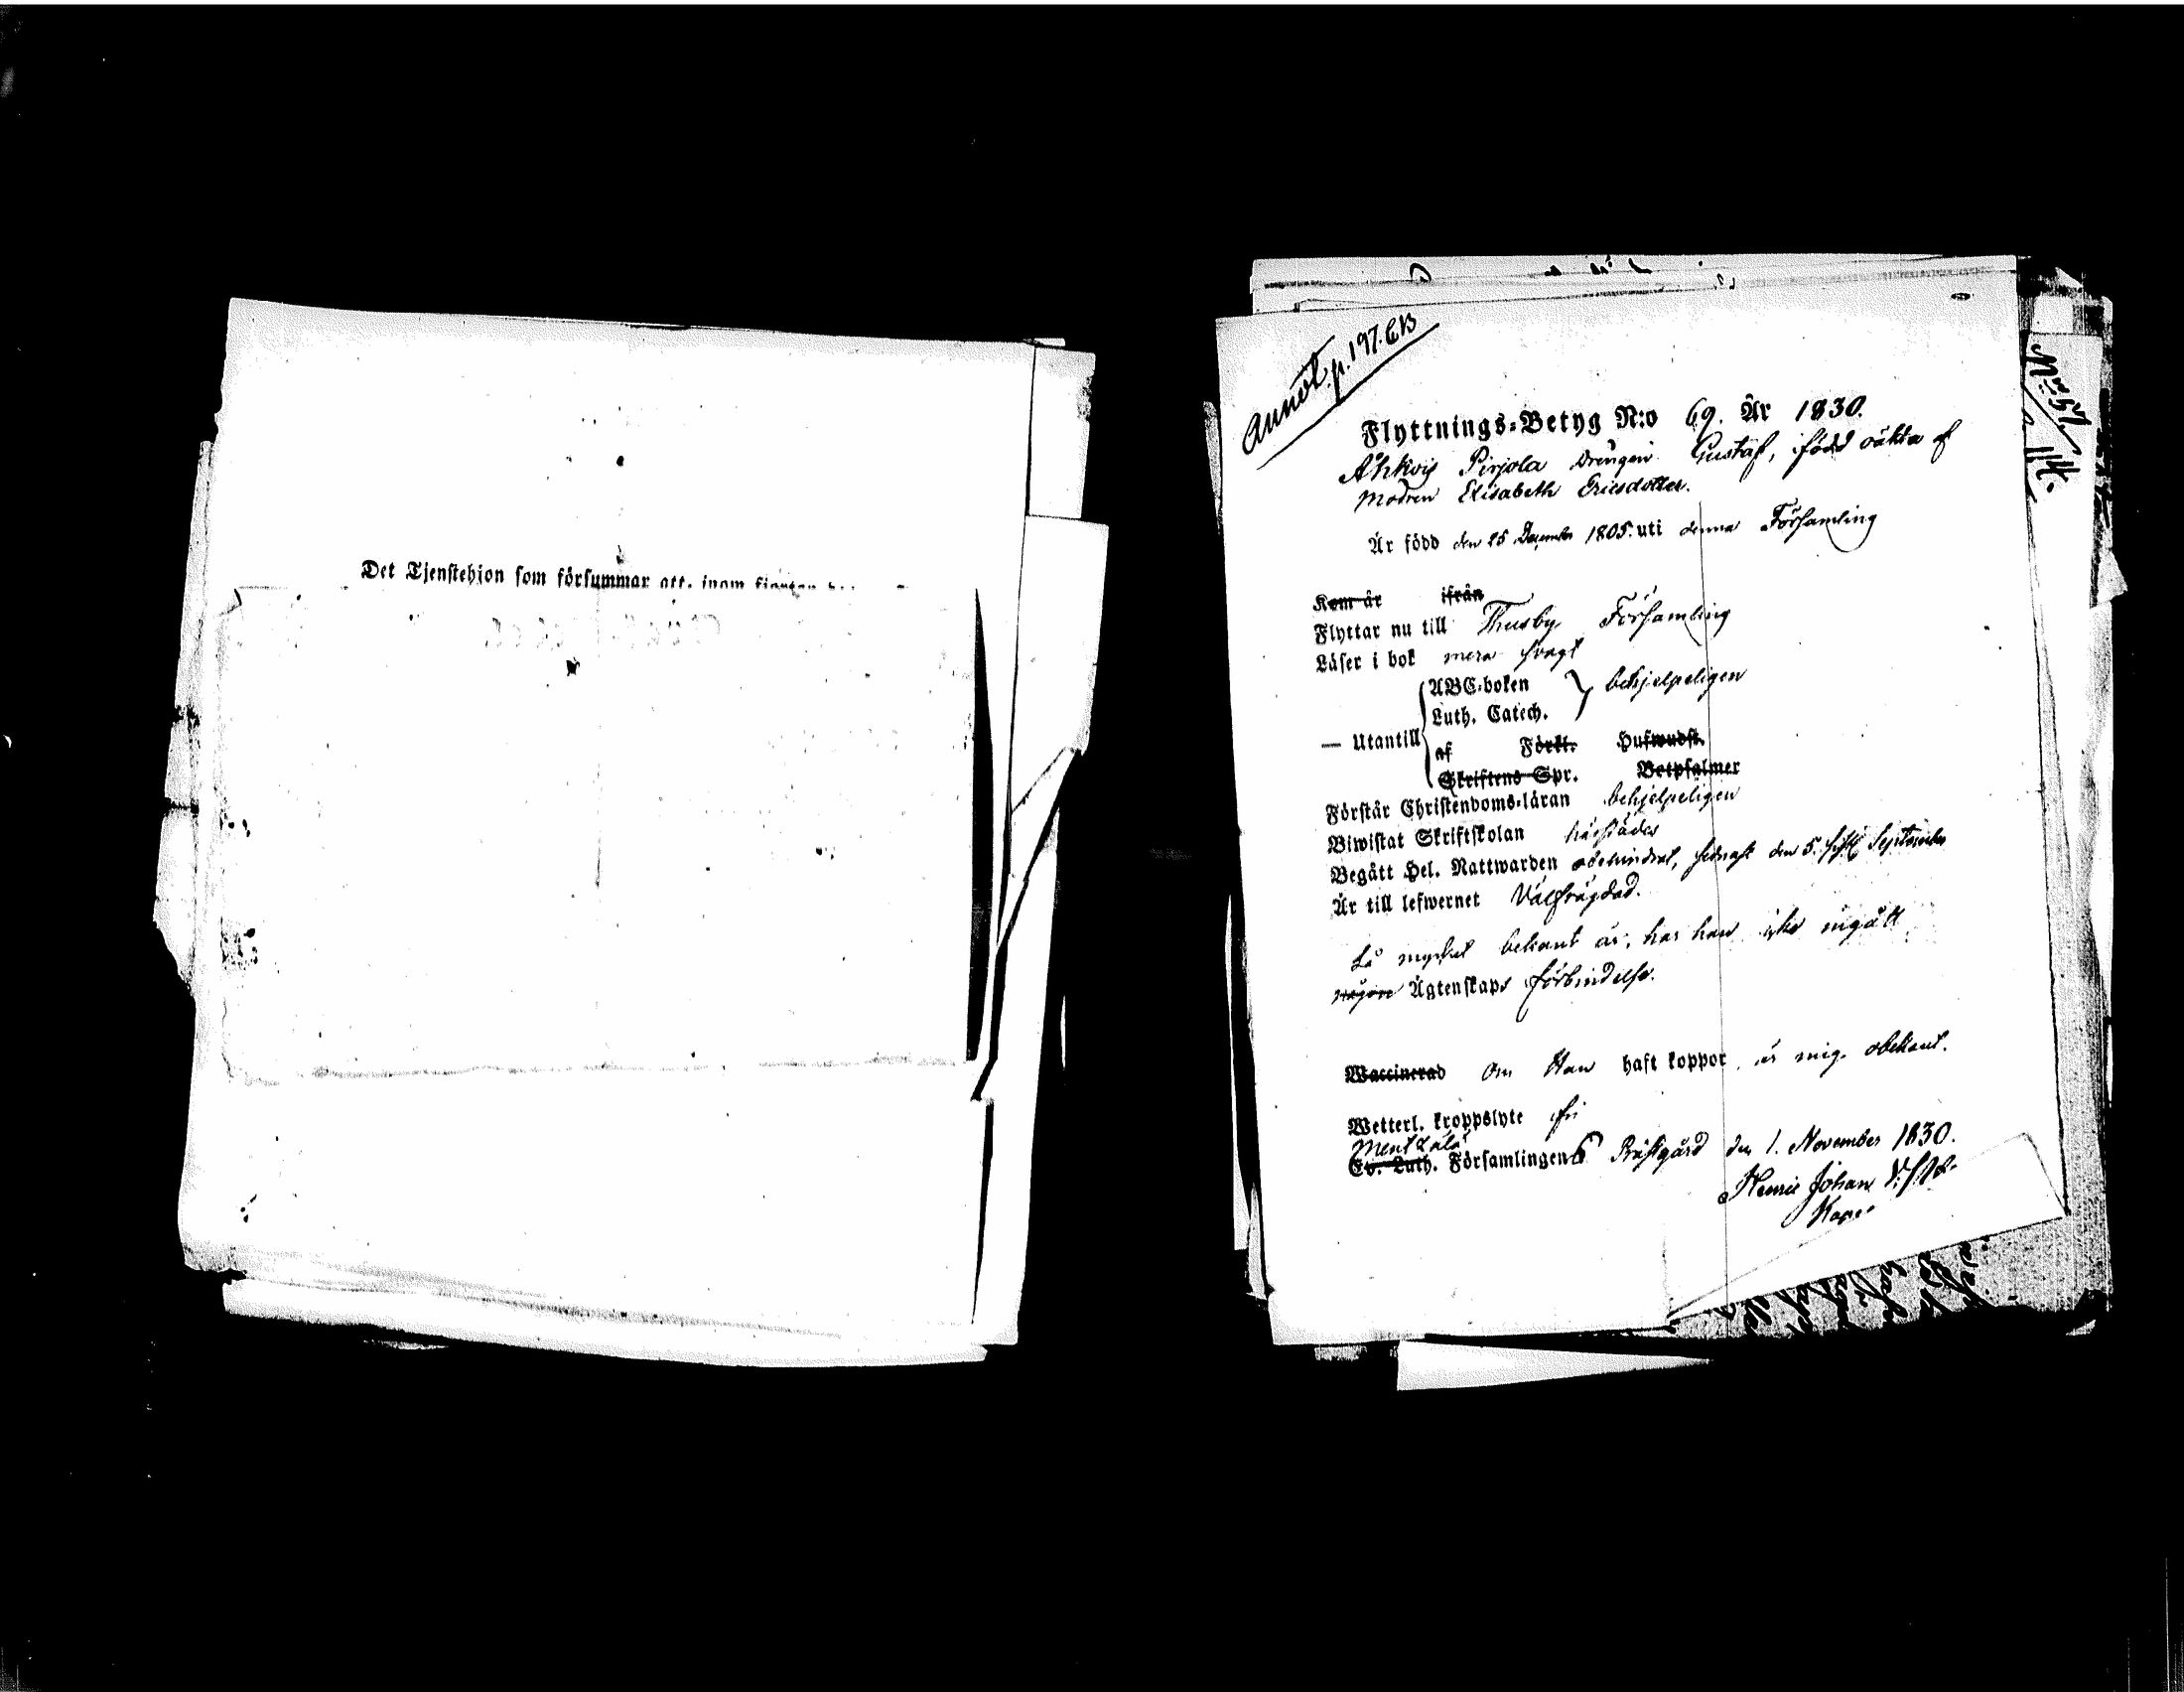 Det Tjenstehjon som försummar att, inom
Annot. p. 197. CB
N:o 57.
114.
Flyttnings-Betyg N:o 69. År 1830.
Åhkois Pirjola Drengen Gustaf, född oäkta af
Modren Elisabeth Ericsdotter.
Är född den 25 December 1805. uti denna Församling
Kom år ifrån
Flyttar nu till Thusby Församling
Läser i bok mera svagt
ABC-boken } behjelpeligen
Luth. Catech.
— Utantill
af Förkl. Hufwudst.
Skriftens Spr. Botpsalmer
Förstår Christendoms-läran behjelpeligen
Biwistat Skriftskolan härstädes
Begått Hel. Nattwarden obehindrat, sednast den 5. sistl. September
Är till lefwernet Välfrägdad.
Så mycket bekant är, har han icke ingått
någon Ägtenskaps förbindelse.
Waccinerad Om Han haft koppor, är mig obekant.
Wetterl. kroppslyte fri
Mentzälä
Ev. Luth. Församlingens Prästgård den 1. November 1830.
Henric Johan